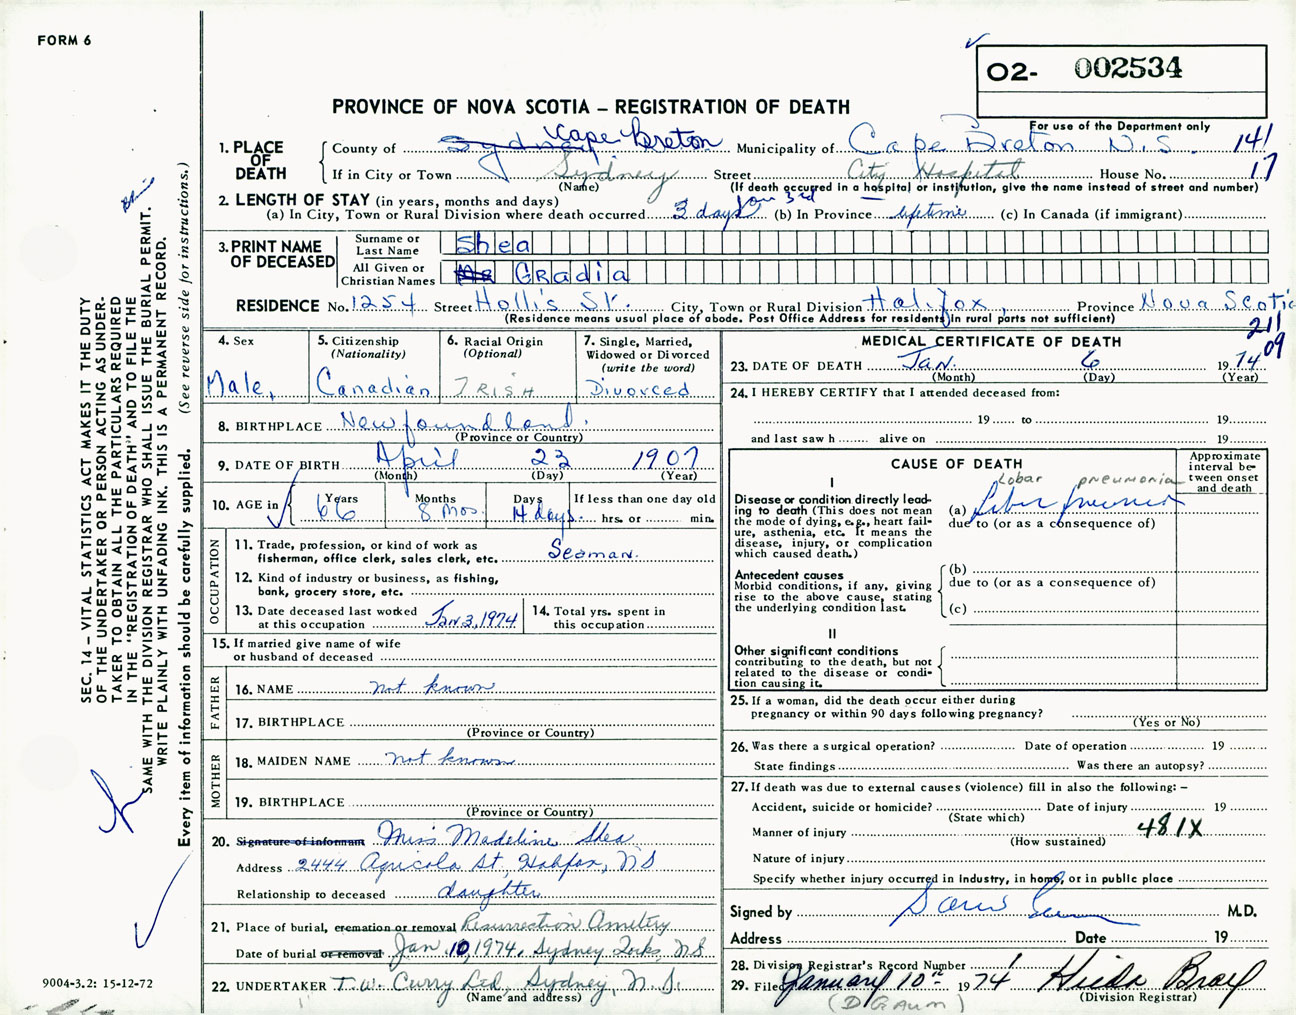 FORM 6
O2- 002534
For use of the Department only
PROVINCE OF NOVA SCOTIA – REGISTRATION OF DEATH
1. PLACE OF DEATH
County of Sydney Cape Breton Municipality of Cape Breton N.S. 141
If in City or Town Sydney Street City Hospital House No. 17
(Name) (If death occurred in a hospital or institution, give the name instead of street and number)
2. LENGTH OF STAY (in years, months and days) Jan 3rd
(a) In City, Town or Rural Division where death occurred 3 days (b) In Province lifetime (c) In Canada (if immigrant)
3. PRINT NAME OF DECEASED
Surname or Last Name Shea
All Given or Christian Names Gradia
RESIDENCE No. 1254 Street Hollis St. City, Town or Rural Division Halifax, Province Nova Scotia
(Residence means usual place of abode. Post Office Address for residents in rural parts not sufficient)
211
09
4. Sex
Male,
5. Citizenship
(Nationality)
Canadian
6. Racial Origin
(Optional)
IRISH
7. Single, Married,
Widowed or Divorced
(write the word)
Divorced
8. BIRTHPLACE Newfoundland.
(Province or Country)
9. DATE OF BIRTH April 23 1907
(Month) (Day) (Year)
10. AGE in
Years 66
Months 8 mos.
Days 14 days.
If less than one day old
hrs. or min.
OCCUPATION
11. Trade, profession, or kind of work as
fisherman, office clerk, sales clerk, etc. Seaman.
12. Kind of industry or business, as fishing,
bank, grocery store, etc.
13. Date deceased last worked
at this occupation Jan 3, 1974
14. Total yrs. spent in
this occupation
15. If married give name of wife
or husband of deceased
FATHER
16. NAME not known
17. BIRTHPLACE
(Province or Country)
MOTHER
18. MAIDEN NAME not known
19. BIRTHPLACE
(Province or Country)
20. Signature of informant Miss Madeline Shea
Address 2444 Agricola St, Halifax, NS
Relationship to deceased daughter
21. Place of burial, cremation or removal Resurrection Cemetery
Date of burial or removal Jan 10, 1974. Sydney Forks, NS
22. UNDERTAKER T.W. Curry Ltd, Sydney, N.S.
(Name and address)
MEDICAL CERTIFICATE OF DEATH
23. DATE OF DEATH Jan. 6 1974
(Month) (Day) (Year)
24. I HEREBY CERTIFY that I attended deceased from:
19 to 19
and last saw h alive on 19
CAUSE OF DEATH
Approximate interval between onset and death
I
Disease or condition directly leading to death (This does not mean
the mode of dying, e.g., heart failure, asthenia, etc. It means the
disease, injury, or complication
which caused death.)
Lobar pneumonia
(a) Lobar pneumonia
due to (or as a consequence of)
Antecedent causes
Morbid conditions, if any, giving
rise to the above cause, stating
the underlying condition last.
(b)
due to (or as a consequence of)
(c)
II
Other significant conditions
contributing to the death, but not
related to the disease or condition causing it.
25. If a woman, did the death occur either during
pregnancy or within 90 days following pregnancy?
(Yes or No)
26. Was there a surgical operation? Date of operation 19
State findings Was there an autopsy?
27. If death was due to external causes (violence) fill in also the following: –
Accident, suicide or homicide? Date of injury 19
(State which)
Manner of injury 481X
(How sustained)
Nature of injury
Specify whether injury occurred in industry, in home, or in public place
Signed by M.D.
Address Date 19
28. Division Registrar's Record Number 1
29. Filed January 10th 1974 Hilda
(Division Registrar)
SEC. 14 – VITAL STATISTICS ACT MAKES IT THE DUTY
OF THE UNDERTAKER OR PERSON ACTING AS UNDERTAKER TO OBTAIN ALL THE PARTICULARS REQUIRED
IN THE "REGISTRATION OF DEATH" AND TO FILE THE
SAME WITH THE DIVISION REGISTRAR WHO SHALL ISSUE THE BURIAL PERMIT.
WRITE PLAINLY WITH UNFADING INK. THIS IS A PERMANENT RECORD.
Every item of information should be carefully supplied. (See reverse side for instructions.)
9004-3.2: 15-12-72